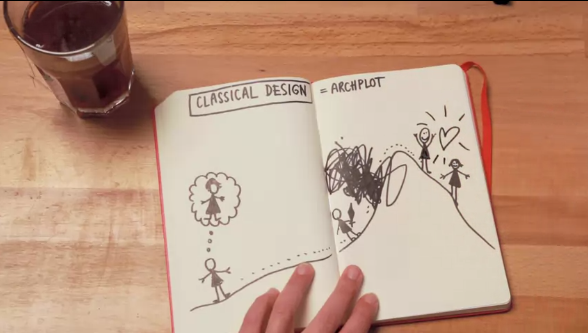 CLASSICAL DESIGN = ARCHPLOT